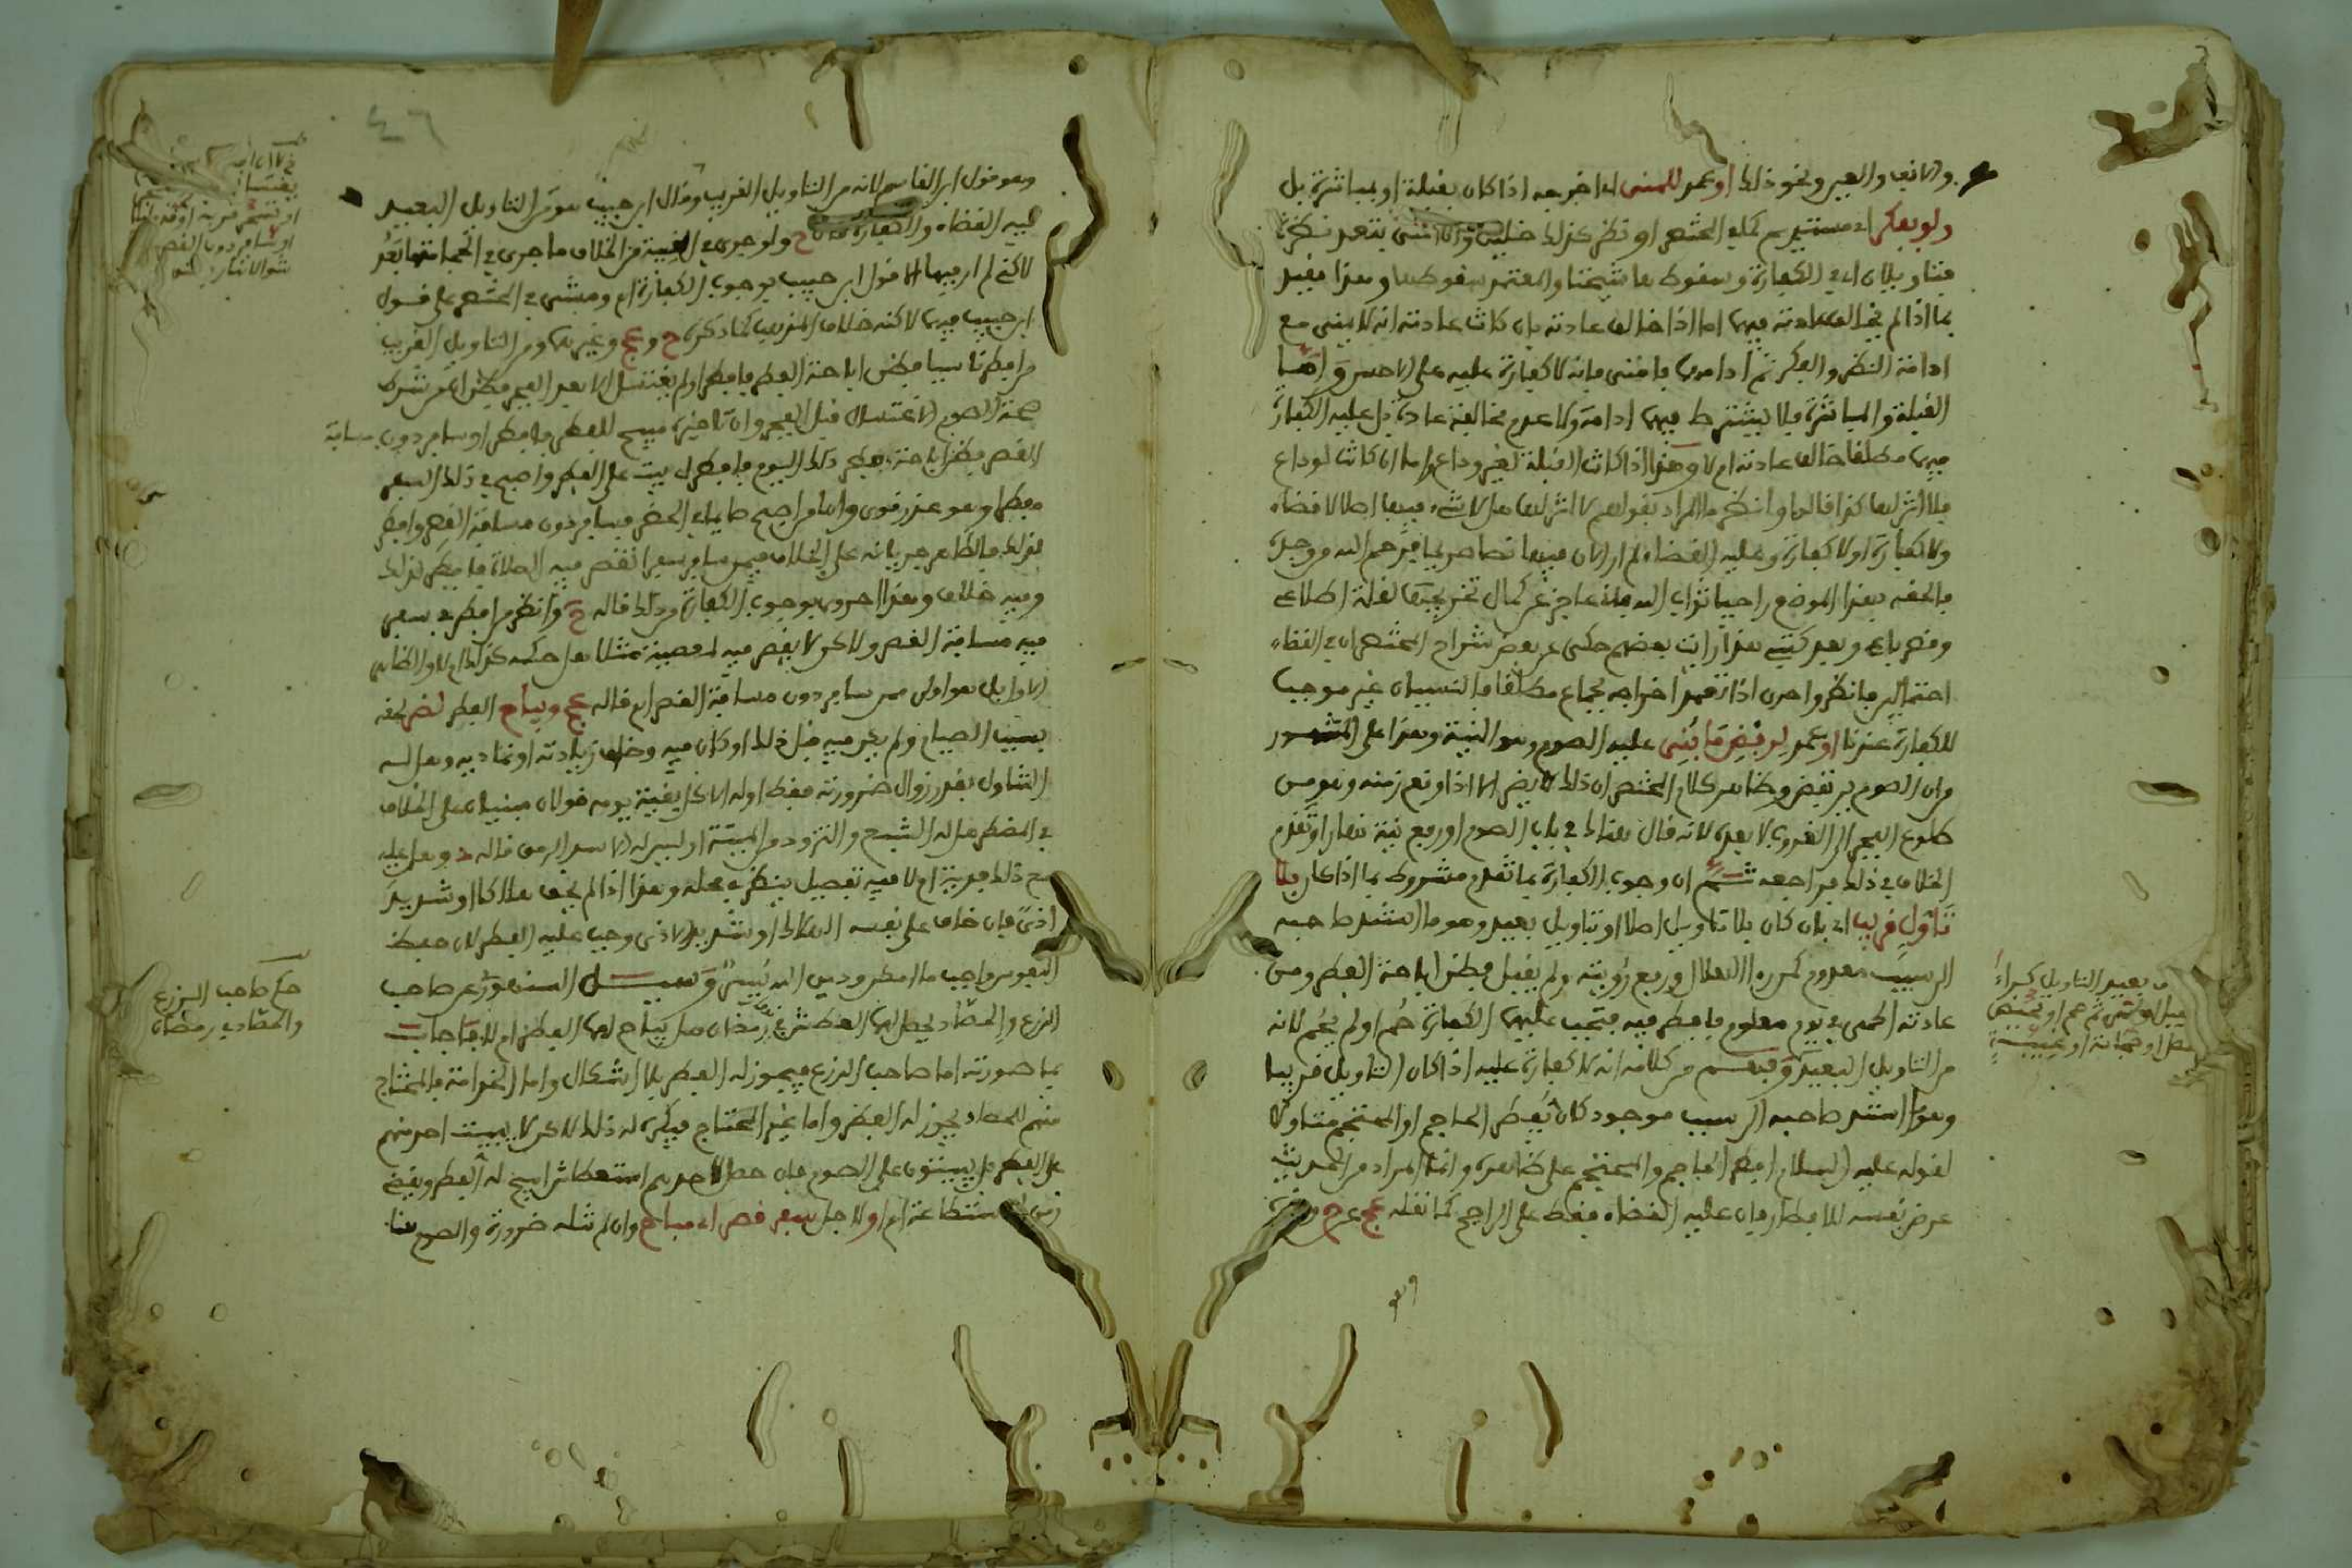 والانف والعين ونحو ذلك او عمد للمنى اى اخرجه اذا كان بقبلة او بمباشرة بل
ولو بفكر اى مستديم كما في المختصر او نظر كذلك
فتاويلان اى في الكفارة وسقوطها شيخنا والمعتمد سقوطها وهذا مقيد
بما اذا لم يخالف عادته فيهما اما اذا خالف عادته بان كانت عادته انه لا يمنى مع
ادامة النظر والفكر ثم ادامهما فامنى فانه لا كفارة عليه على الاحسن واما
القبلة والمباشرة فلا يشترط فيهما ادامة ولا عدم مخالفة عادة بل عليه الكفارة
فيهما مطلقا خالف عادته ام لا وهذا اذا كانت القبلة لغير وداع واما ان كانت لوداع
فلا اثر لها كذا قالوا وانظر ما المراد بقولهم لا اثر لها هل لا شىء فيها اصلا لا قضاء
ولا كفارة او لا كفارة وعليه القضاء لم ار الان فيها نصا صريحا فرحم الله من وجده
فالحقه بهذا الموضع راجيا ثواب الله فانى عاجز عن كمال تحريجها لقلة اطلاعي
وقصر باعي وبعد كتبي هذا رايت بعضهم حكى عن بعض شراح المختصر ان في القضاء
احتمالين فانظره واحرى اذا تعمد اخراجه بجماع مطلقا فالنسيان غير موجب
للكفارة عندنا او عمد لرفض ما بني عليه الصوم وهو النية وهذا على المشهور
وان الصوم يرتفض وظاهر كلام المختصر ان ذلك لا يضر الا اذا وقع زمنه وهو من
طلوع الفجر الى الغروب لا بعده لانه قال هناك في باب الصوم او رفع نية نهارا وتقدم
الخلاف في ذلك فراجعه ثم ان وجوب الكفارة بما تقدم مشروط بما اذا كان بلا
تاول قريب اى بان كان بلا تاويل اصلا او تاويل بعيد وهو ما استند صاحبه
الى سبب معدوم كمن رءا الهلال ورفع رؤيته ولم يقبل فظن اباحة الفطر ومن
عادته الحمى في يوم معلوم فافطر فيه فتجب عليهما الكفارة حم او لم يحم لانه
من التاويل البعيد وفهم من كلامه انه لا كفارة عليه اذا كان التاويل قريبا
وهو ما استند صاحبه الى سبب موجود كان يفطر الحاجم او المحتجم متاولا
لقوله عليه السلام افطر الحاجم والمحتجم على ظاهره وانما المراد من الحديث
عرض نفسه للافطار فان عليه القضاء فقط على الراجح كما نقله عج عن ح
وهو
من بعيد التاويل كمن راء
فقبل او حمى ثم حم او لحيض
حصل او حجامة او غيبة
وهو قول ابن القاسم لانه من التاويل القريب وقال ابن حبيب هو من التاويل البعيد
فيه القضاء والكفارة ح ولو جرى في الغيبة من الخلاف ما جرى في الحجامة ما بعد
لاكني لم ار فيها الا قول ابن حبيب بوجوب الكفارة اه ومشى في المختصر على قول
ابن حبيب فيهما لاكنه خلاف المذهب كما ذكره ح وعج وغيرهما ومن التاويل القريب
من افطر ناسيا فظن اباحة الفطر فافطر او لم يغتسل الا بعد الفجر فظن ان من شرط
صحة الصوم الاغتسال قبل الفجر وان تاخيره مبيح للفطر فافطر او سافر دون مسافة
القصر فظن اباحة فطر ذلك اليوم فافطر او بيت على الفطر واصبح في ذلك السفر
مفطرا وهو عذر قوى واما من اصبح صائما في الحضر فسافر دون مسافة القصر وافطر
لذلك فالظاهر جريانه على الخلاف فيمن سافر سفرا تقصر فيه الصلاة فافطر لذلك
وفيه خلاف وهذا احرى بوجوب الكفارة من ذلك قاله ح وانظر من افطر في سفر
فيه مسافة القصر ولاكن لا يقصر فيه لمعصية مثلا هل حكمه كذلك ام لا والظاهر
الاول بل هو اولى ممن سافر دون مسافة القصر اه قاله عج ويباح الفطر لضر لحقه
بسبب الصيام ولم يكن فيه قبل ذلك او كان فيه وخاف زيادته او تماديه وهل له
التناول بقدر زوال ضرورته فقط او له الاكل بقية يومه قولان مبنيان على الخلاف
في المضطر هل له الشبع والتزود من الميتة او ليس له الا سد الرمق قاله د وهل عليه
مع ذلك فدية ام لا فيه تفصيل ينظر في محله وهذا اذا لم يخف هلاكا او شديد
اذى فان خاف على نفسه الهلاك او شديد الاذى وجب عليه الفطر لان حفظ
النفوس واجب ما امكن ودين الله يسر وسئل السنهورى عن صاحب
الزرع والحصاد يحصل لهما العطش في رمضان هل يباح لهما الفطر ام لا فاجاب
بما صورته اما صاحب الزرع فيجوز له الفطر بلا اشكال واما الخدامة فالمحتاج
منهم للحصاد يجوز له الفطر واما غير المحتاج فيكره له ذلك لاكن لا يبيت احد منهم
على الفطر بل يبيتون على الصوم فان حصل لاحدهم استعطاش ابيح له الفطر ويقضي
زمن الاستطاعة اه او لاجل سفر قصر اى مباح وان لم تنله ضرورة والصوم هنا
يغتسل
او تسحر قربه او قدم ليلا
او سافر دون القصر
حكم صاحب الزرع
والحصاد في رمضان
٤٦